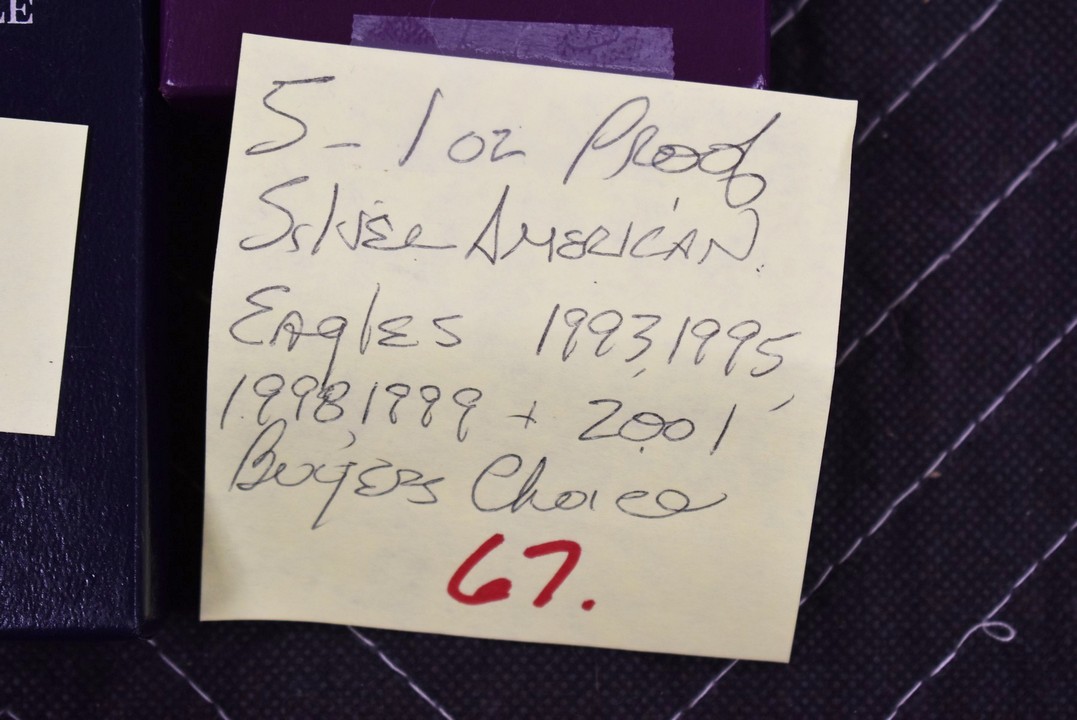 LE
5 - 1 oz Proof
Silver American
Eagles 1993, 1995,
1998, 1999 + 2001
Buyers Choice
67.